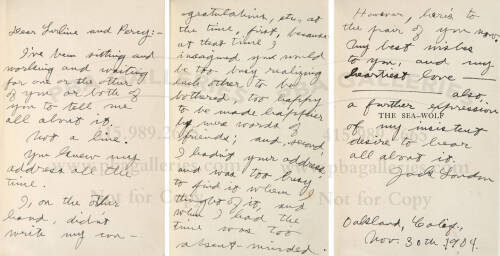 Dear Iroline and Percy:-
I've been sitting and
working and waiting
for one or the other
of you or both of
you to tell me
all about it.
Not a line.
You knew my
address all the
time.
I, on the other
hand, didn't
write my con-
gratulations, etc., at
the time, first, because
at that time I
imagined you would
be too busy realizing
each other to be
bothered too happy
to be made happier
by mere words of
friends; and, second,
I hadn't your address,
and was too busy
to find it when I
thought of it, and
when I had the
time was too
absent-minded.
However, here's to
the pair of you now.
My best wishes
to you, and my
heartiest love
also,
a further expression
THE SEA-WOLF
of my insistent
desire to hear
all about it.
Jack London
Oakland, Calif.,
Nov. 30th 1904.
415.989.2
pbagalleries.com
Not for Copy
Not for Copy